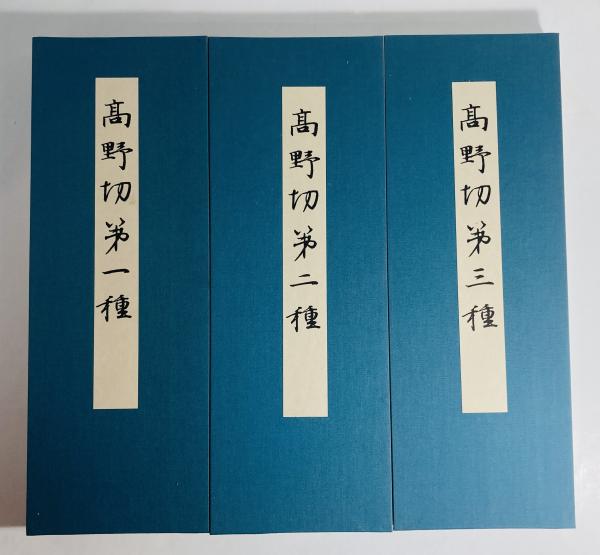 髙野切第一種
髙野切第二種
髙野切第三種